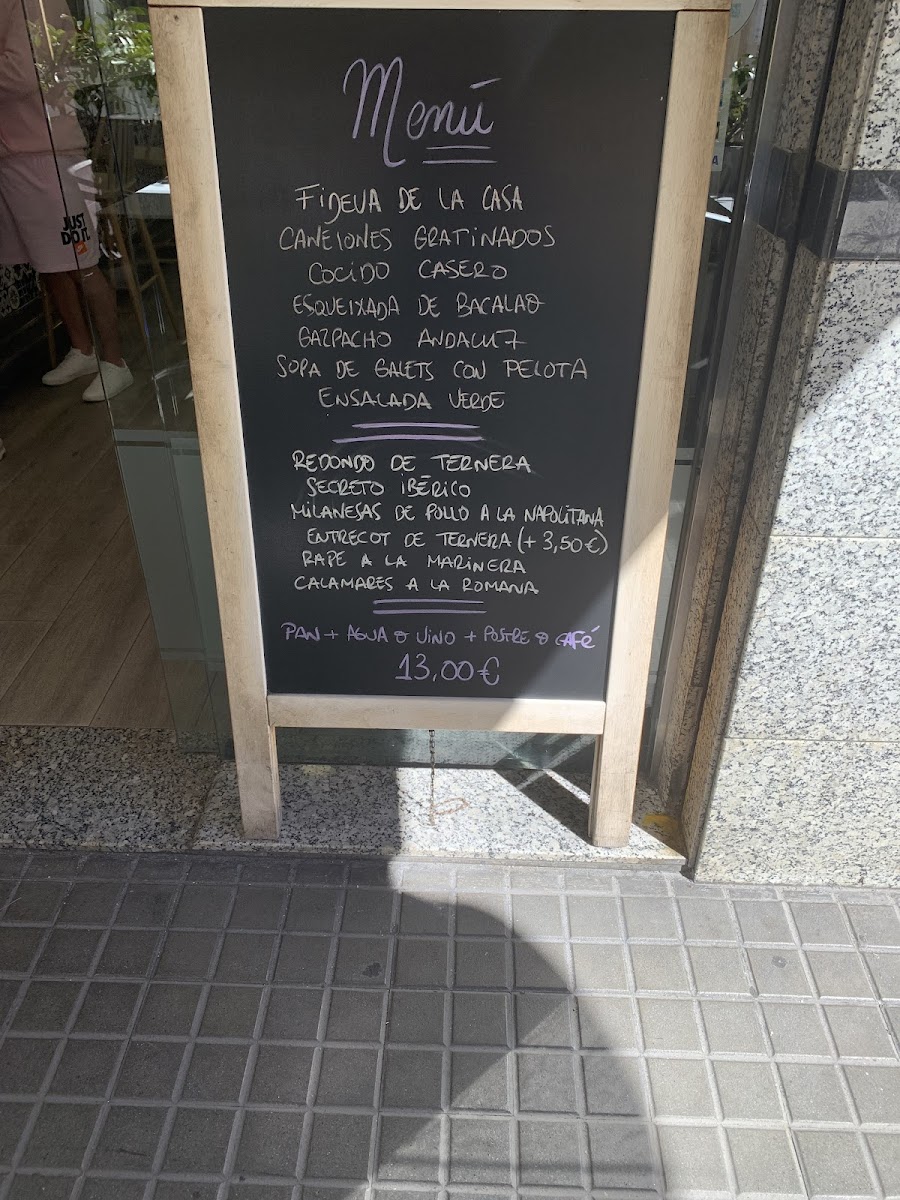 Menú
FIDEUA DE LA CASA
CANELONES GRATINADOS
COCIDO CASERO
ESQUEIXADA DE BACALAO
GAZPACHO ANDALUZ
SOPA DE GALETS CON PELOTA
ENSALADA VERDE
REDONDO DE TERNERA
SECRETO IBÉRICO
MILANESAS DE POLLO A LA NAPOLITANA
ENTRECOT DE TERNERA (+ 3,50€)
RAPE A LA MARINERA
CALAMARES A LA ROMANA
PAN + AGUA O VINO + POSTRE O CAFÉ
13,00€
JUST
DO IT.